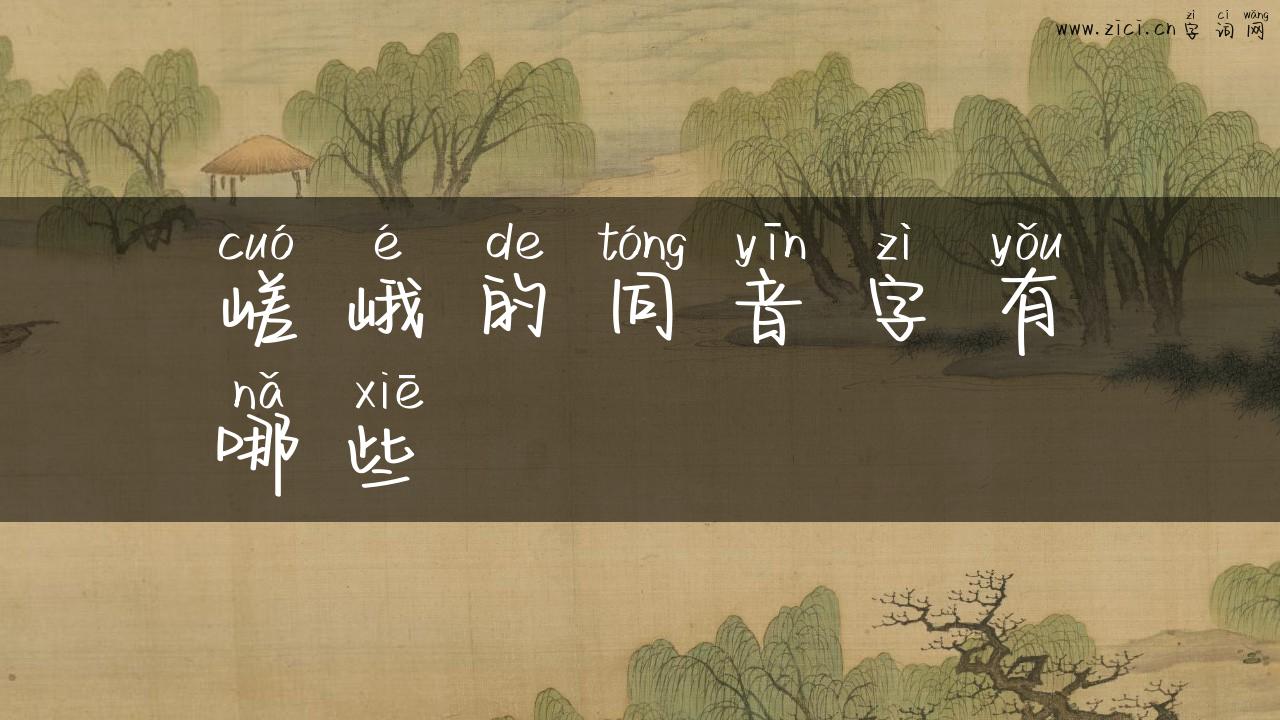 zì cí wǎng
www.zici.cn 字词网
cuó é de tóng yīn zì yǒu
嵯峨的同音字有
nǎ xiē
哪些